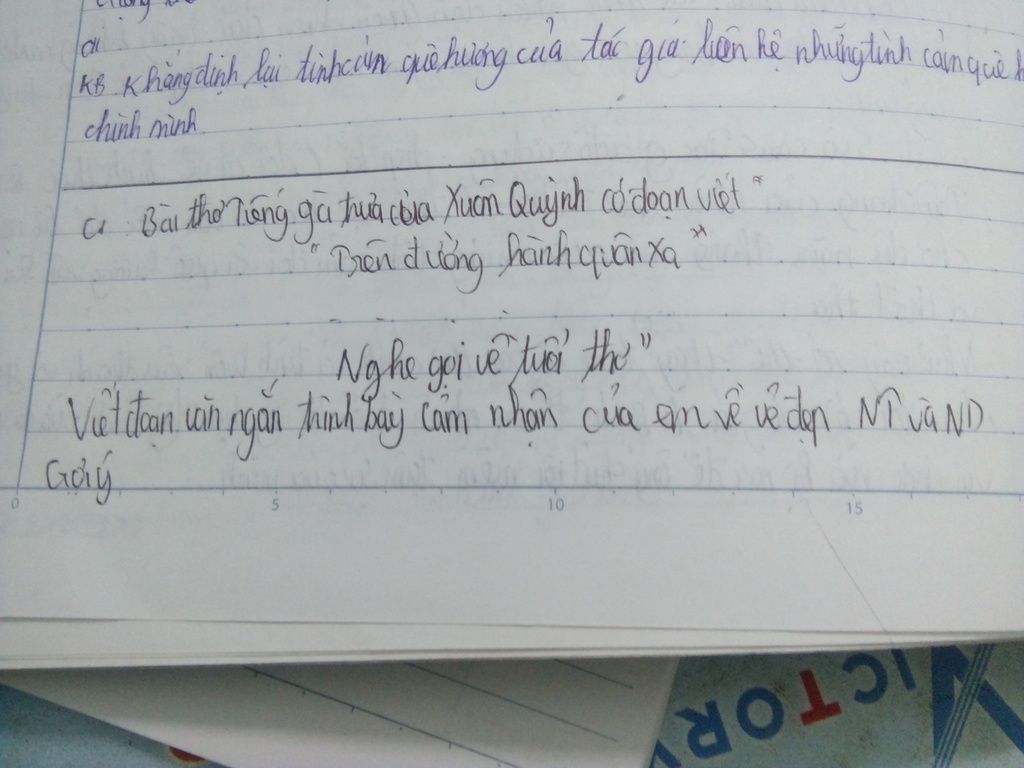 KB Khẳng định lại tình cảm quê hương của tác giả liên hệ những tình cảm quê h
chính mình
C. Bài thơ Tiếng gà trưa của Xuân Quỳnh có đoạn viết "
" Trên đường hành quân xa "
Nghe gọi về tuổi thơ"
Viết đoạn văn ngắn trình bày cảm nhận của em về vẻ đẹp NT và ND
Gợi ý
0 5 10 15
VICTORY